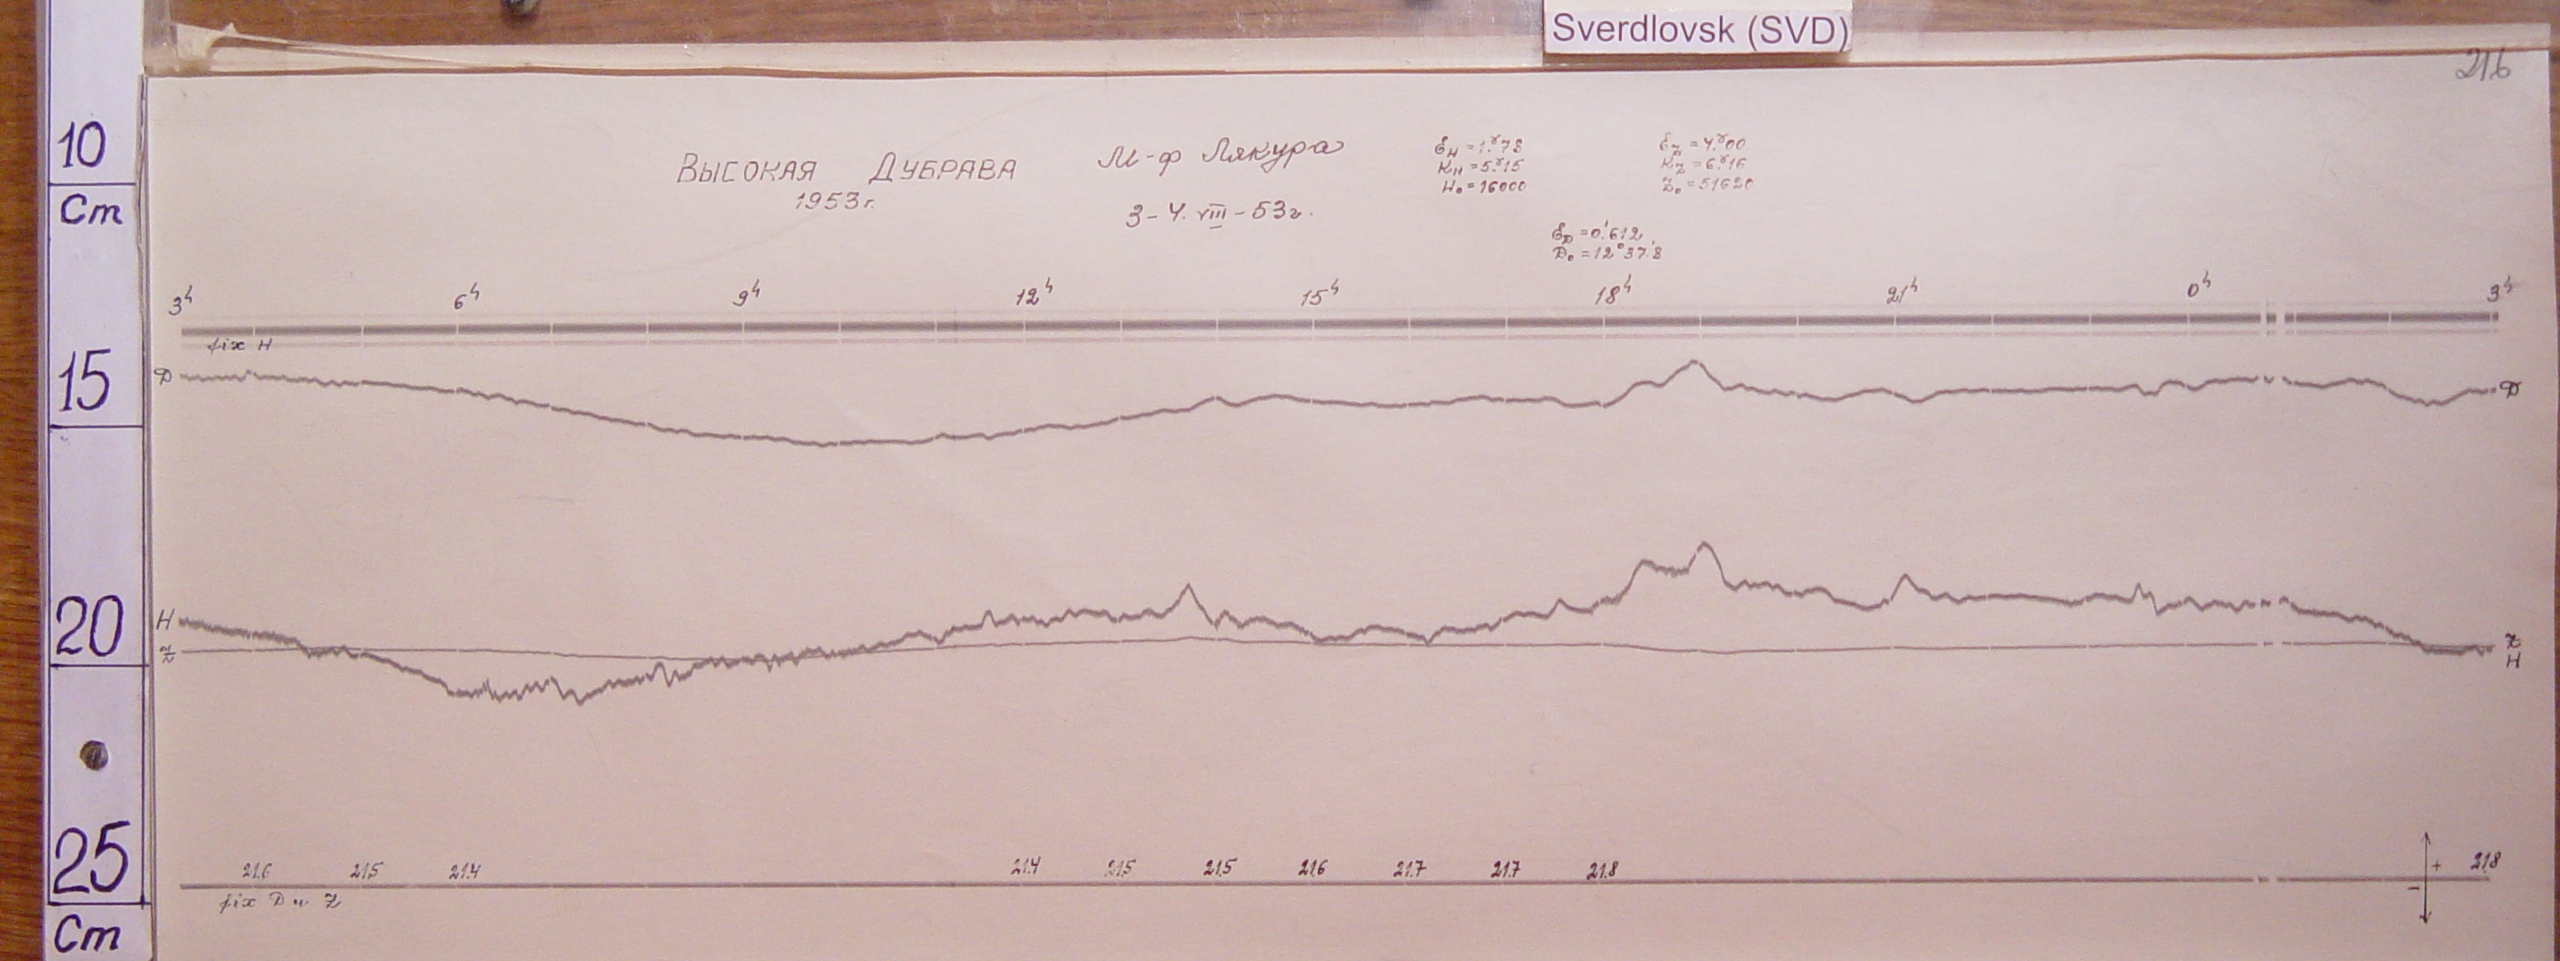 Sverdlovsk (SVD)
216
10
Cm
15
20
25
Cm
ВЫСОКАЯ ДУБРАВА
1953 г.
М-ф Лякура
3-4. VIII - 53 г.
Ɛн = 1.ᵞ78
Кн = 5.ᵞ15
Н₀ = 16000
Ɛz = 4.ᵞ00
Кz = 6.ᵞ16
Z₀ = 51620
ƐD = 0.′612
D₀ = 12°37.′8
3ʰ 6ʰ 9ʰ 12ʰ 15ʰ 18ʰ 21ʰ 0ʰ 3ʰ
fix H
D D
H
Z
Z
H
21.6 21.5 21.4 21.4 21.5 21.5 21.6 21.7 21.7 21.8 + 21.8
−
fix D и Z